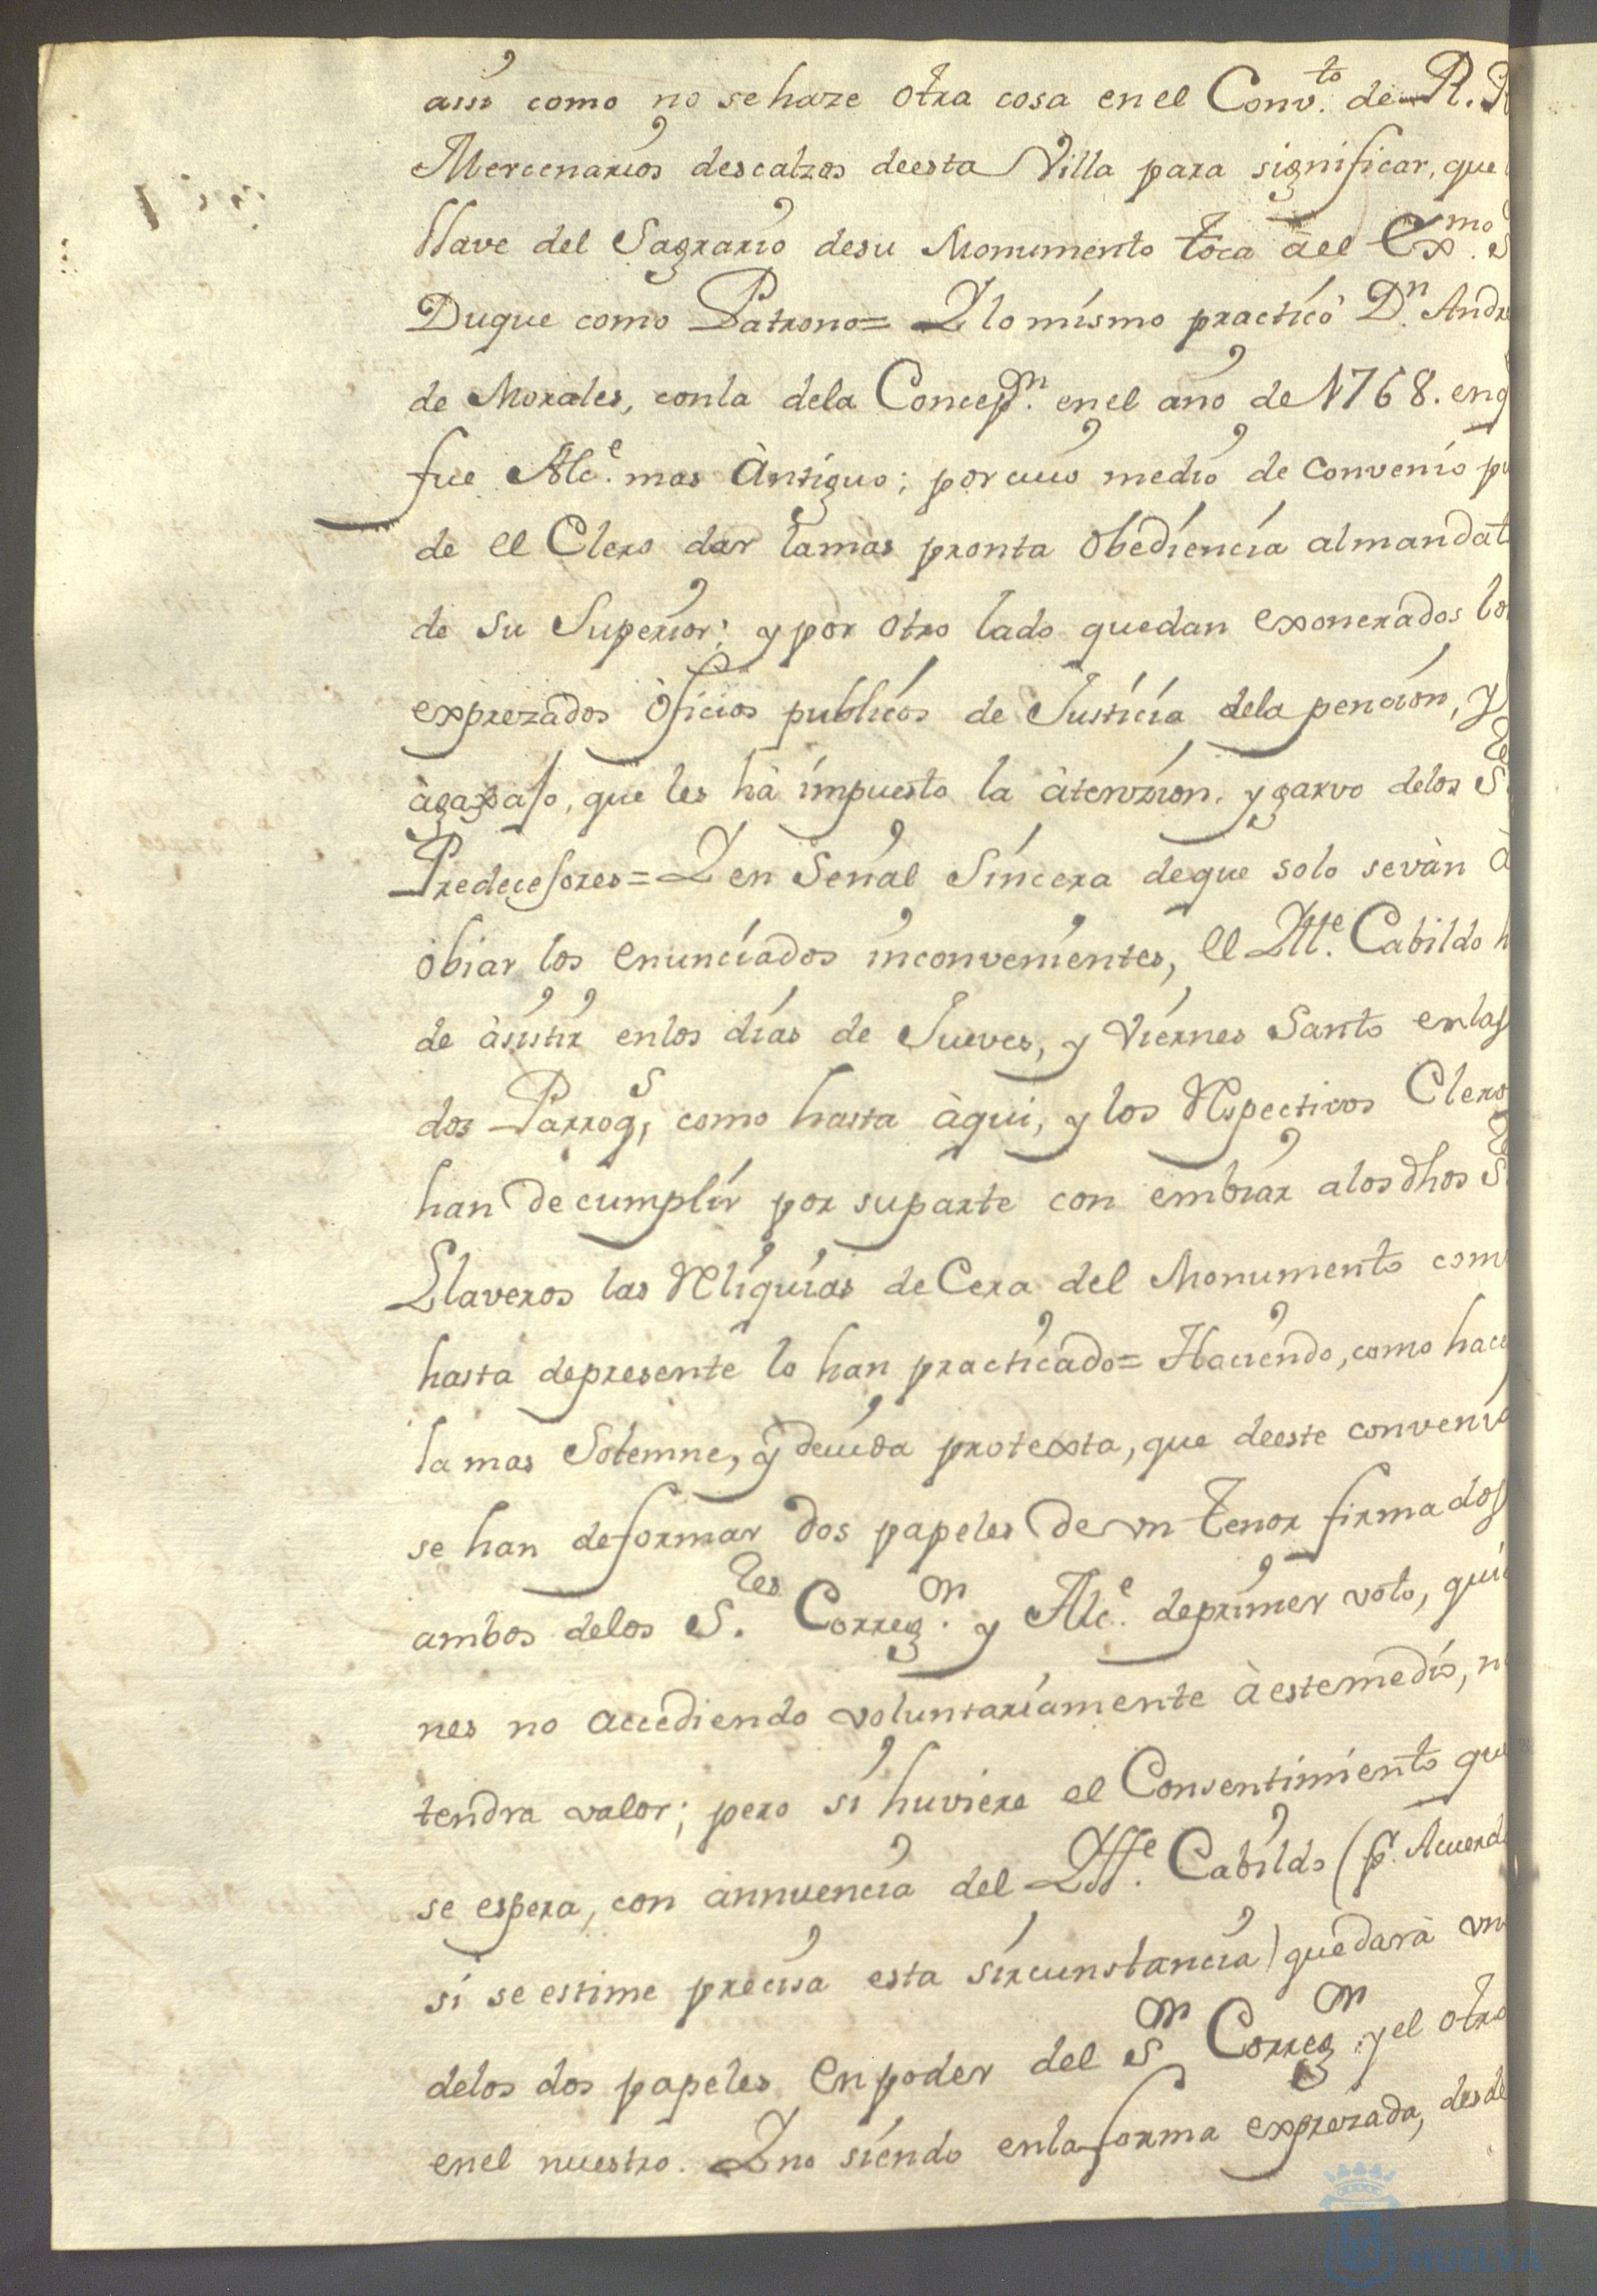 assi como no se haze otra cosa en el Conv.to de R. R
Mercenarios descalzos deesta Villa para significar, que
llave del Sagrario desu Monumento toca àel Exmo. S
Duque como Patrono= Y lo mismo practicó Dn. Andre
de Morales, conla dela Concepn. en el año de 1768. enq
fue Alce. mas Àntiguo; por cuio medio de convenio pu
de el Clero dar lamas pronta obediencia almandat
de su Superior; y por otro lado quedan exonerados los
exprezados òficios publicos de Justicia dela pencion, y
àgaxaso, que les hà impuesto la àtenzion, y garvo delos Sres
Predecesores= Y en Señal Sincera deque solo sevàn à
obiar los enunciados inconvenientes, el Ylle. Cabildo h
de àsistir enlos dias de Jueves, y Viernes Santo enlas
dos Parroqs, como hasta àqui, y los Respectivos Cleros
han de cumplir por suparte con embiar alos dhos Sres
Llaveros las Reliquias de Cera del Monumento com
hasta depresente lo han practicado= Haciendo, como hace
la mas Solemne, y devida protexta, que deeste convenio
se han deformar dos papeles de un tenor firmados
ambos delos S.res Corregr. y Alce. deprimer voto, quie
nes no accediendo voluntariamente àestemedio, n
tendra valor; pero si huviere el Consentimiento que
se espera, con annuencia del Ylle. Cabildo (pr. Acuerdo
si se estime precisa esta sircunstancia) quedarà un
delos dos papeles en poder del Sr Corregr. y el otro
enel nuestro. Y no siendo enla forma exprezada, desde
HUELVA